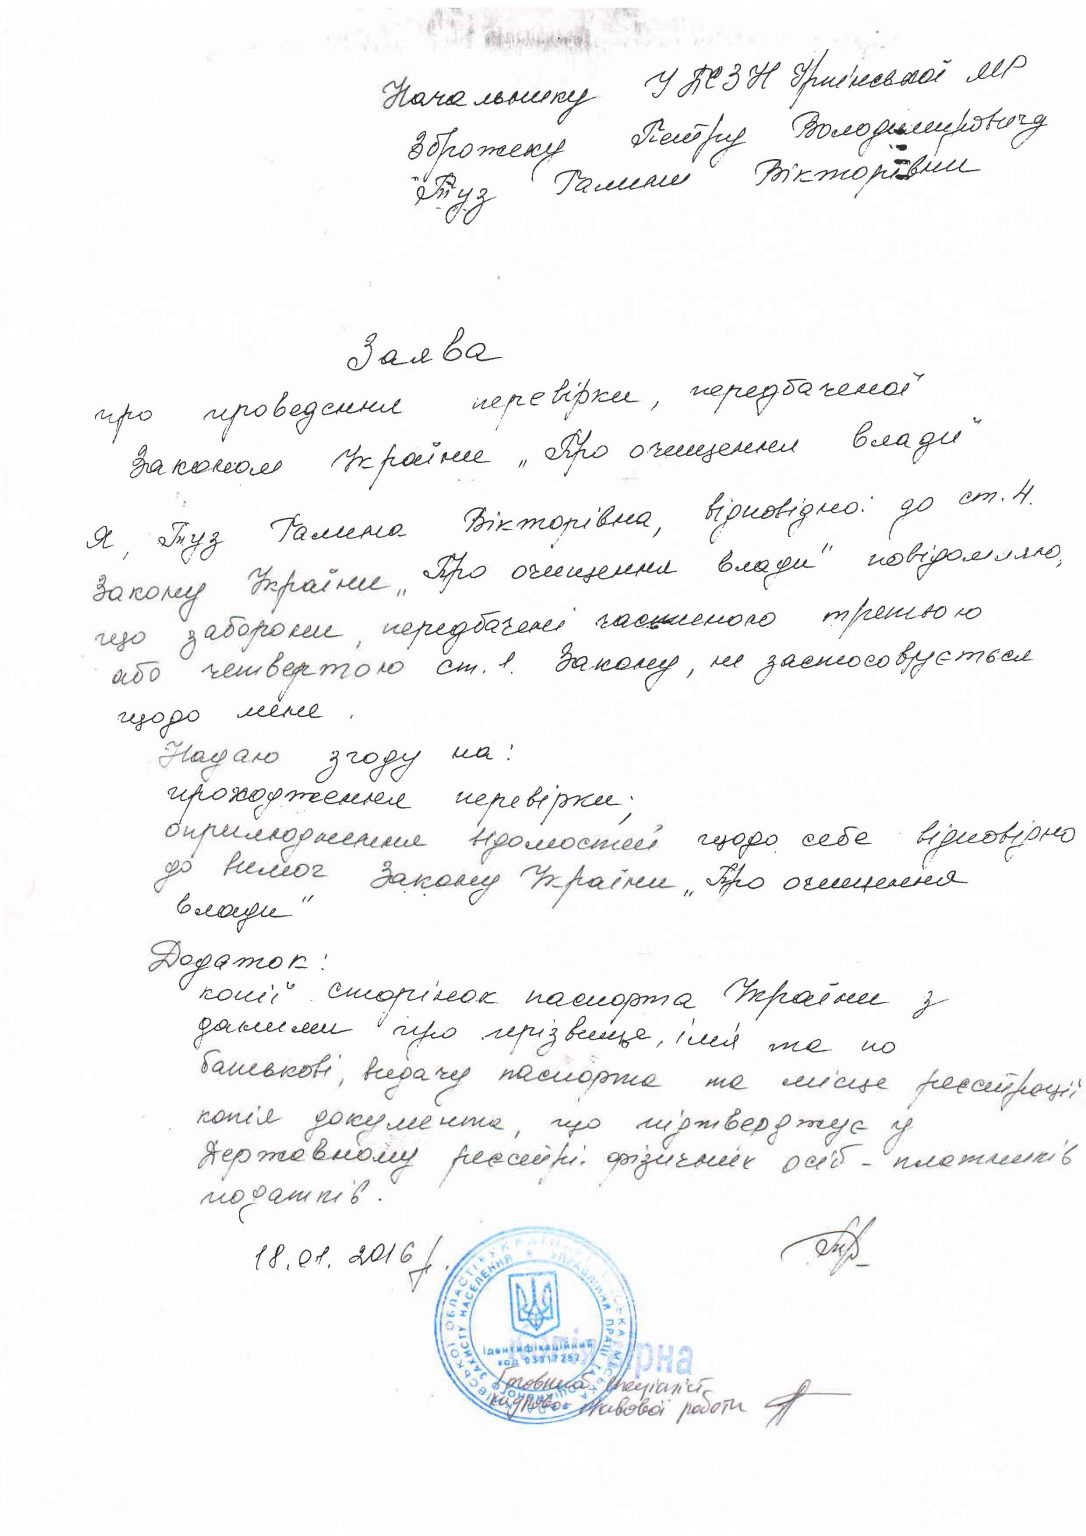 Начальнику УПСЗН Ірпінської МР
Зброжеку Петру Володимировичу
Туз Галини Вікторівни
Заява
про проведення перевірки, передбаченої
Законом України „Про очищення влади"
Я, Туз Галина Вікторівна, відповідно до ст. 4.
Закону України „Про очищення влади" повідомляю,
що заборони, передбачені частиною третьою
або четвертою ст. 1. Закону, не застосовується
щодо мене.
Надаю згоду на:
проходження перевірки;
оприлюднення відомостей щодо себе відповідно
до вимог Закону України „Про очищення
влади"
Додаток:
копії сторінок паспорта України з
даними про прізвище, ім'я та по
батькові, видачу паспорта та місце реєстрації
копія документа, що підтверджує у
Державному реєстрі фізичних осіб - платників
податків.
18.01.2016р.
Ідентифікаційний
код 03317257
Копія вірна
Головний спеціаліст
правової роботи